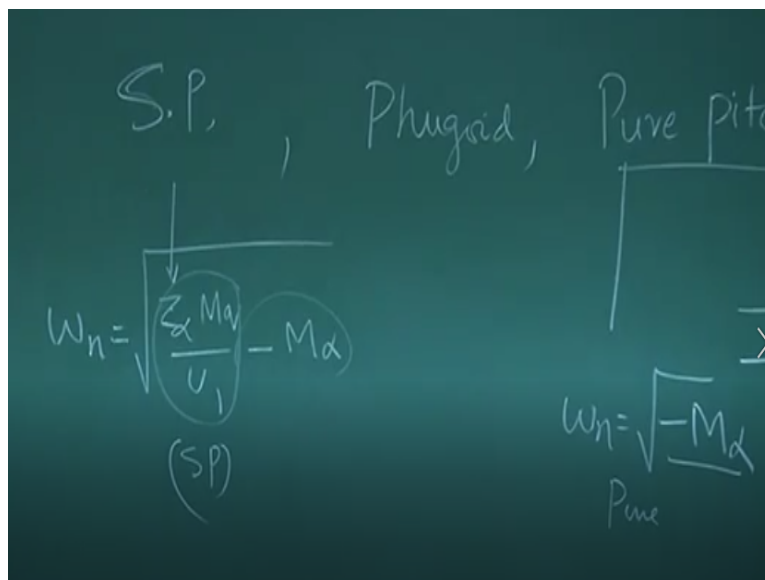 S.P. , Phugoid, Pure pitc
ωn = √(Zα Mq / U1 − Mα)
(SP)
ωn = √(−Mα)
Pure